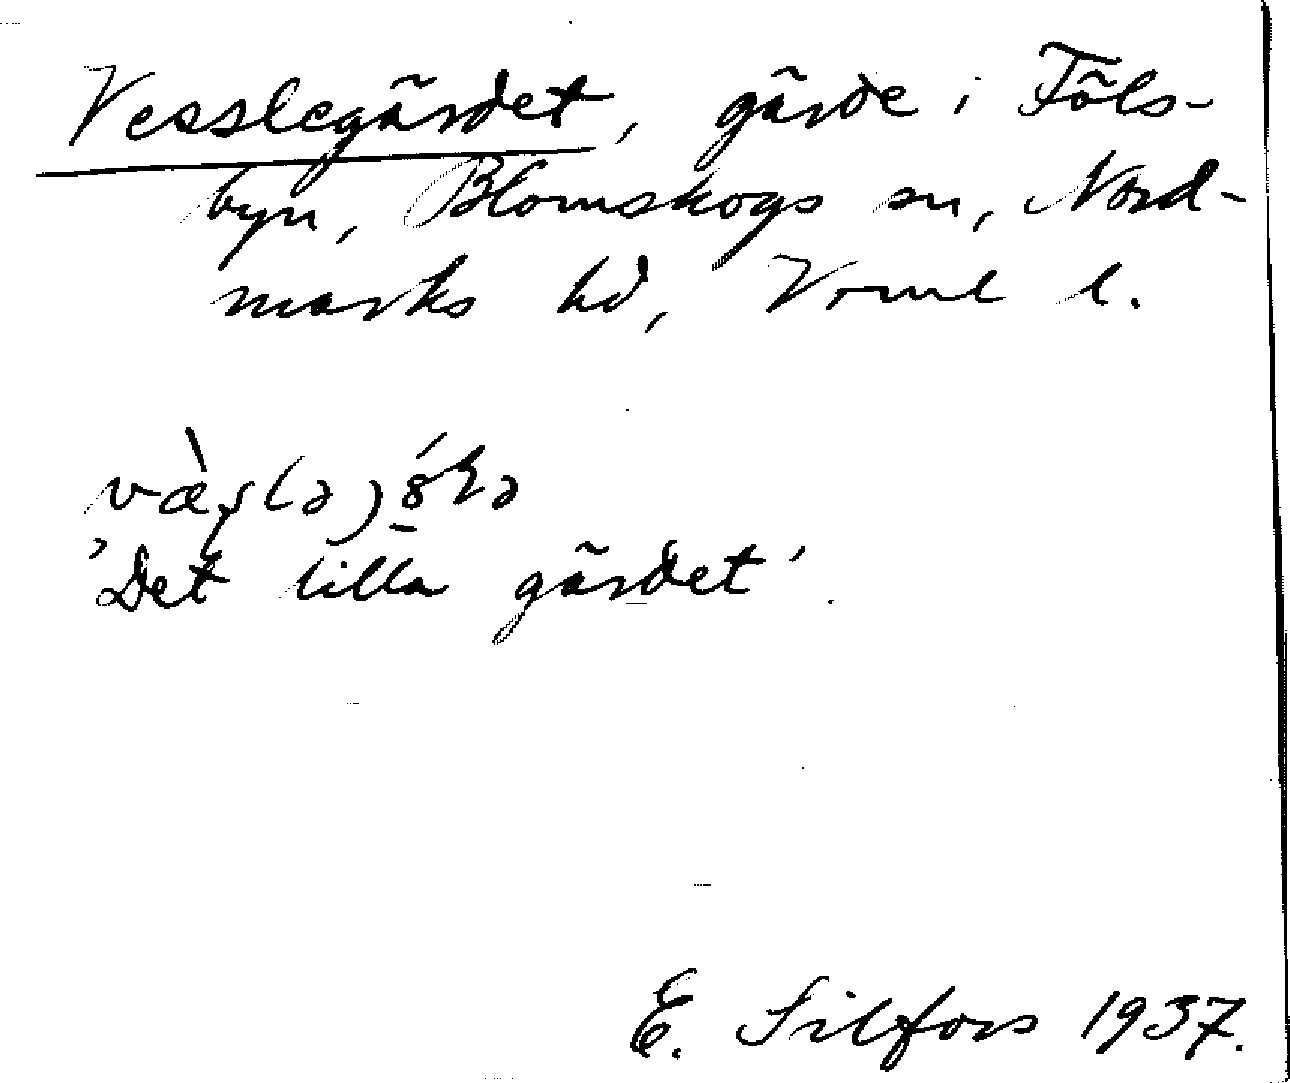 Vesslegärdet, gärde i Föls-
byn, Blomskogs sn, Nord-
marks hd, Vrml l.
'Det lilla gärdet'.
E. Silfors 1937.